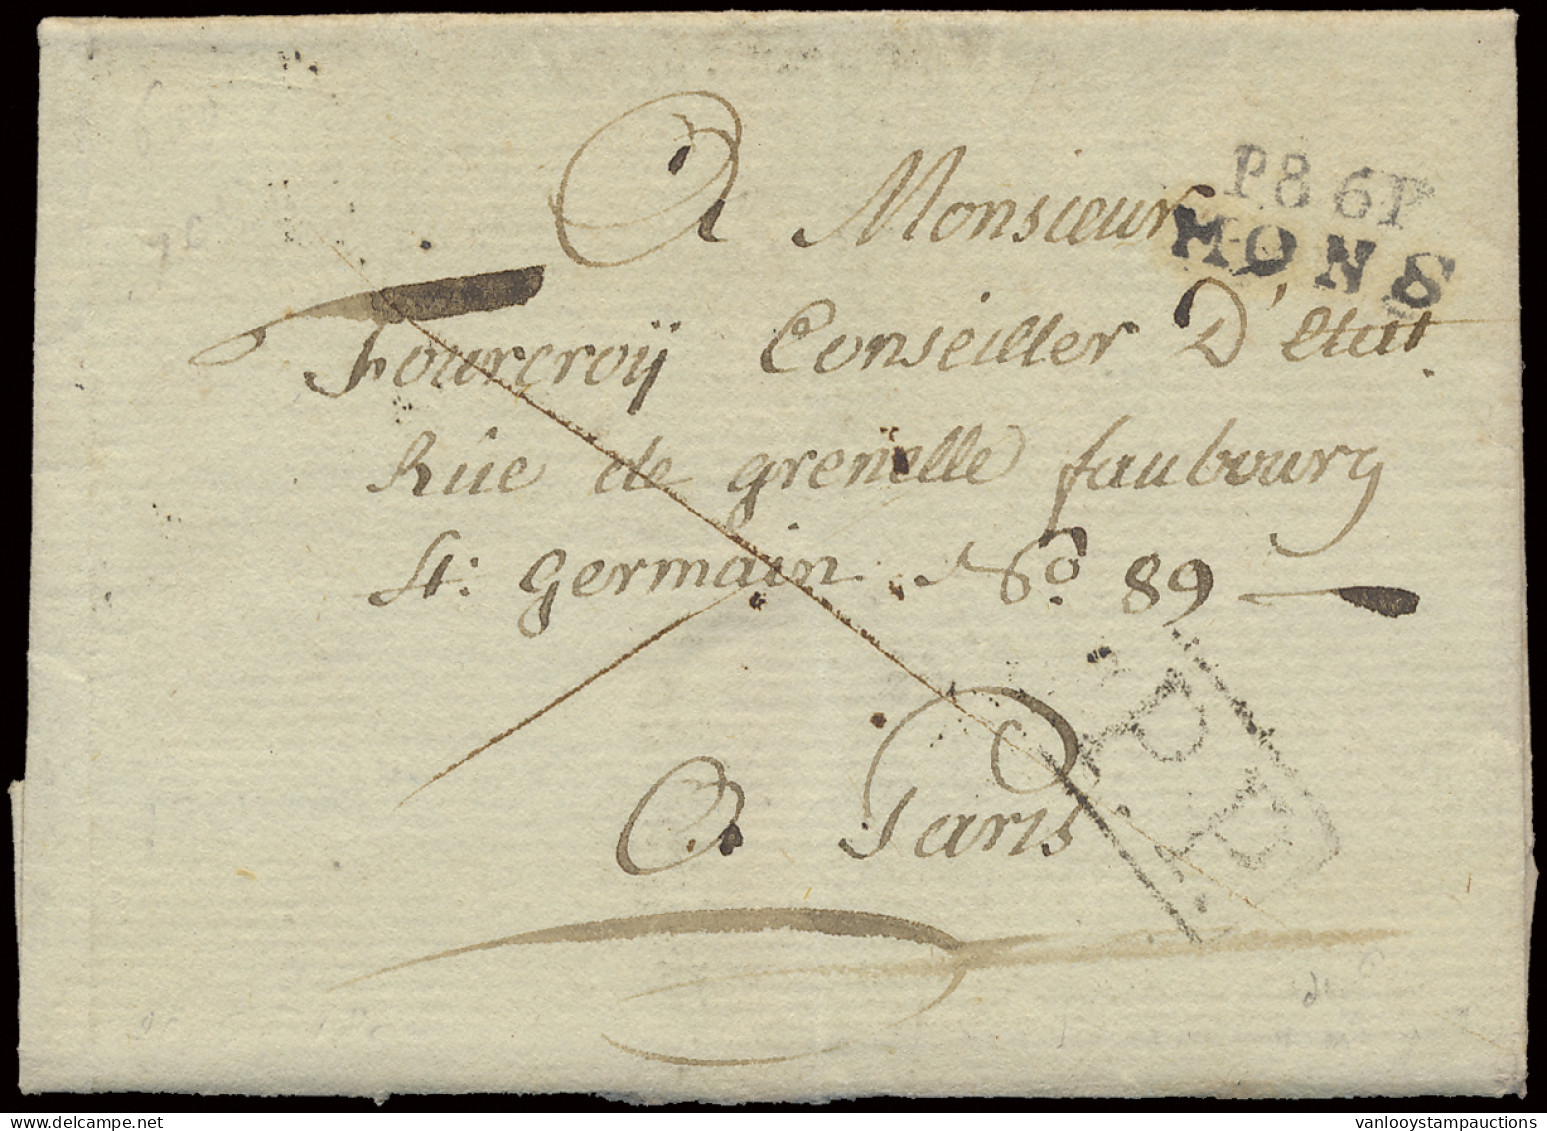 A Monsieur
P86P
MONS
Fourcroÿ Conseiller D'Etat.
Rüe de grenelle faubourg
St: germain No. 89
A Paris
P.P.
vanlooystampauctions